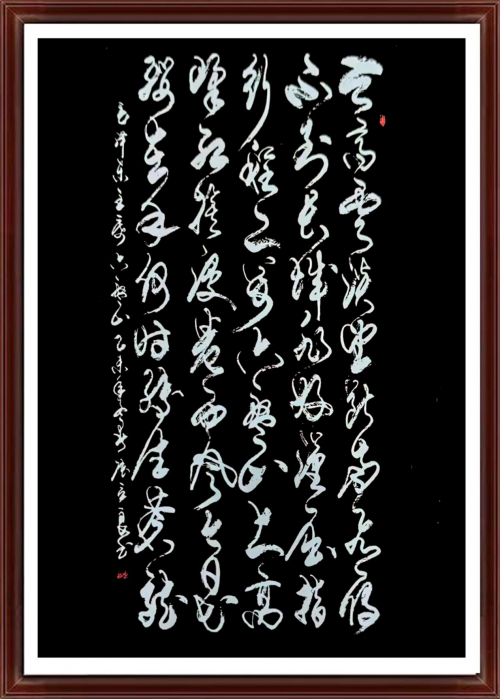 天高雲淡望断南飞雁
不到长城非好漢屈指
行程二萬六盘山上高
峰红旗漫卷西风今日长
缨在手何时缚住苍龙
毛泽东主席六盘山乙未年书